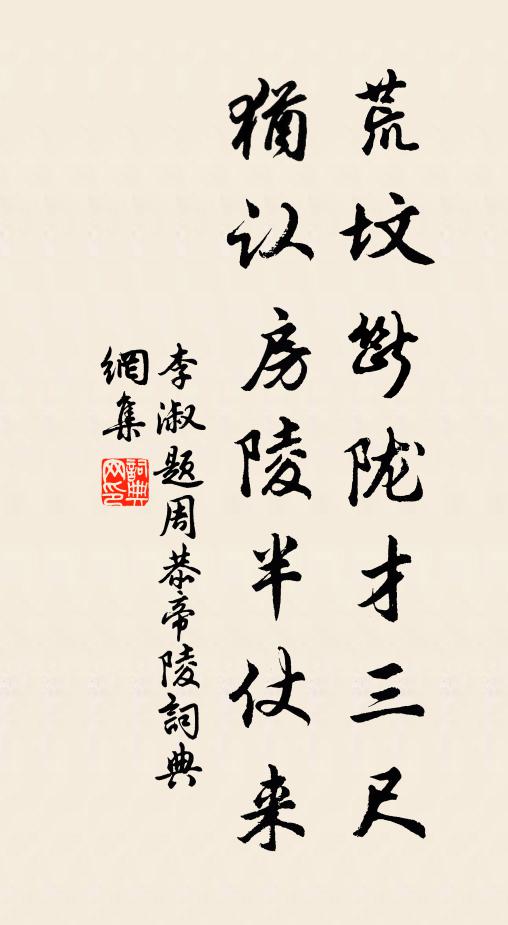 荒坟断陇才三尺
犹认房陵半仗来
李淑题周恭帝陵詞典
網集
詞典
网印